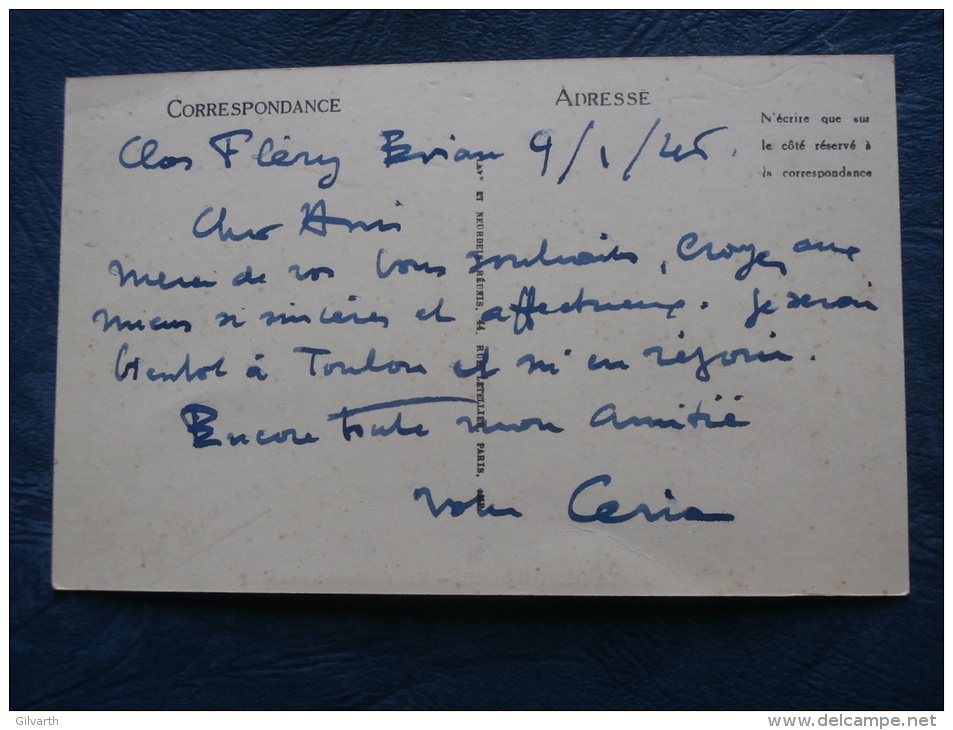 CORRESPONDANCE
ADRESSE
N'écrire que sur
le côté réservé à
la correspondance
Clos Fléry Evian 9/1/45.
Cher Ami
Merci de vos bons souhaits, croyez aux
miens si sincères et affectueux. Je serai
bientot à Toulon et m'en réjouis.
Encore toute mon amitié
Votre Ceria
ET NEURDEIN RÉUNIS, 44, RUE LETELLIER, PARIS, IMP.
Gilvarth
www.delcampe.net